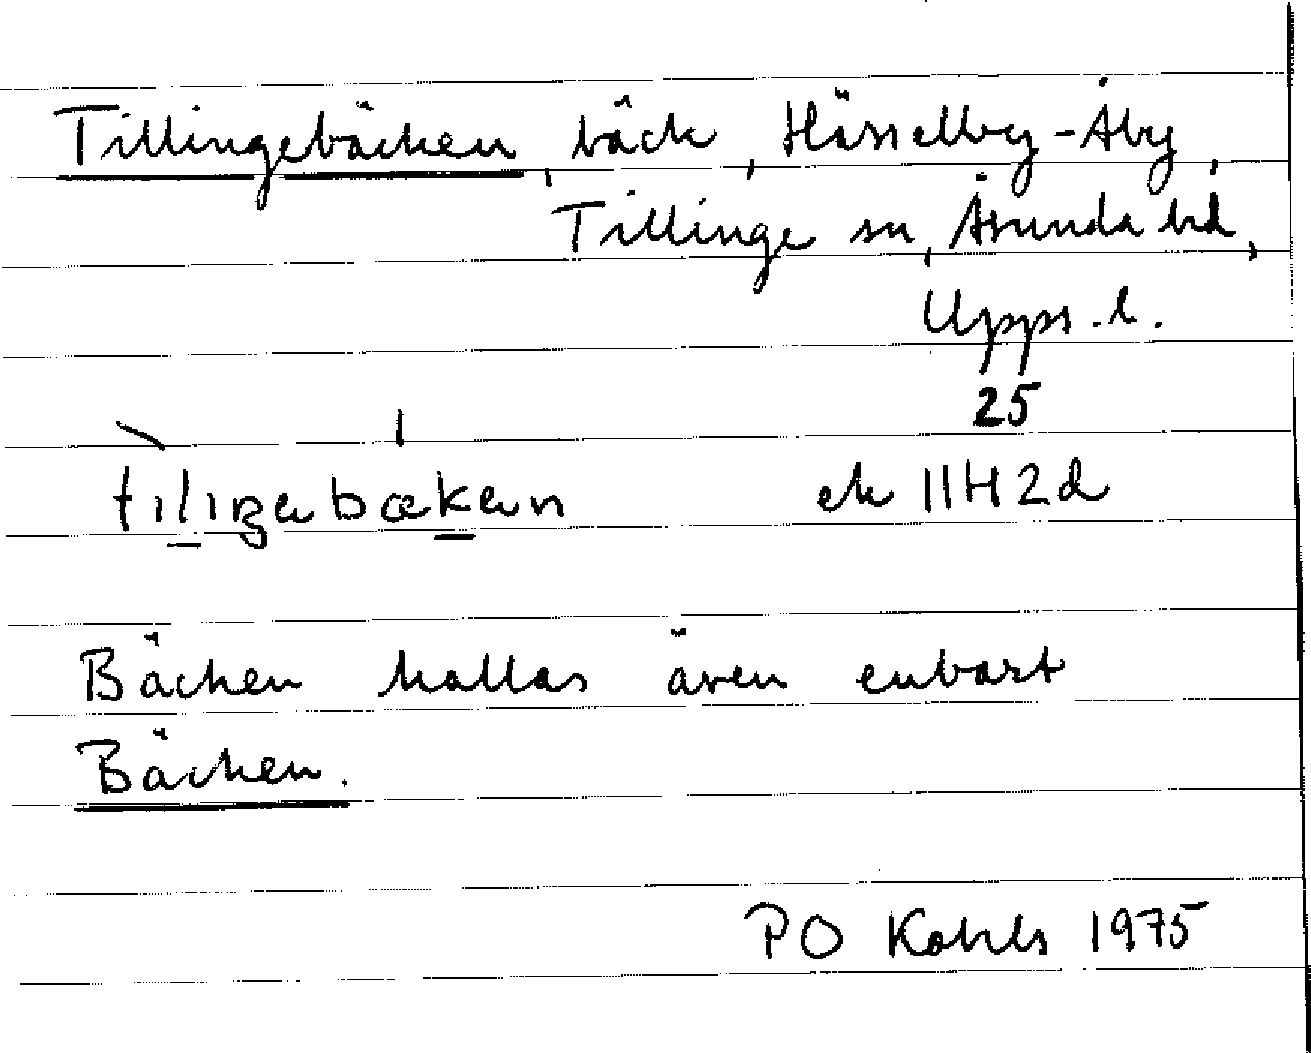 Tillingebäcken, bäck, Hässelby-Åby,
Tillinge sn, Åsunda hd,
Upps. l.
25
tiliŋebæken ek 11H2d
Bäcken kallas även enbart
Bäcken.
PO Kohls 1975